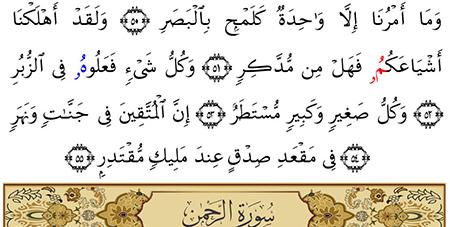 وَمَا أَمْرُنَا إِلَّا وَٰحِدَةٌ كَلَمْحٍۭ بِالْبَصَرِ ۝٥٠ وَلَقَدْ أَهْلَكْنَا
أَشْيَاعَكُمُۥ فَهَلْ مِن مُّدَّكِرٍ ۝٥١ وَكُلُّ شَىْءٍ فَعَلُوهُۥ فِى الزُّبُرِ
۝٥٢ وَكُلُّ صَغِيرٍ وَكَبِيرٍ مُّسْتَطَرٌ ۝٥٣ إِنَّ الْمُتَّقِينَ فِى جَنَّٰتٍ وَنَهَرٍ
۝٥٤ فِى مَقْعَدِ صِدْقٍ عِندَ مَلِيكٍ مُّقْتَدِرٍۭ ۝٥٥
سُورَةُ الرَّحْمَٰن